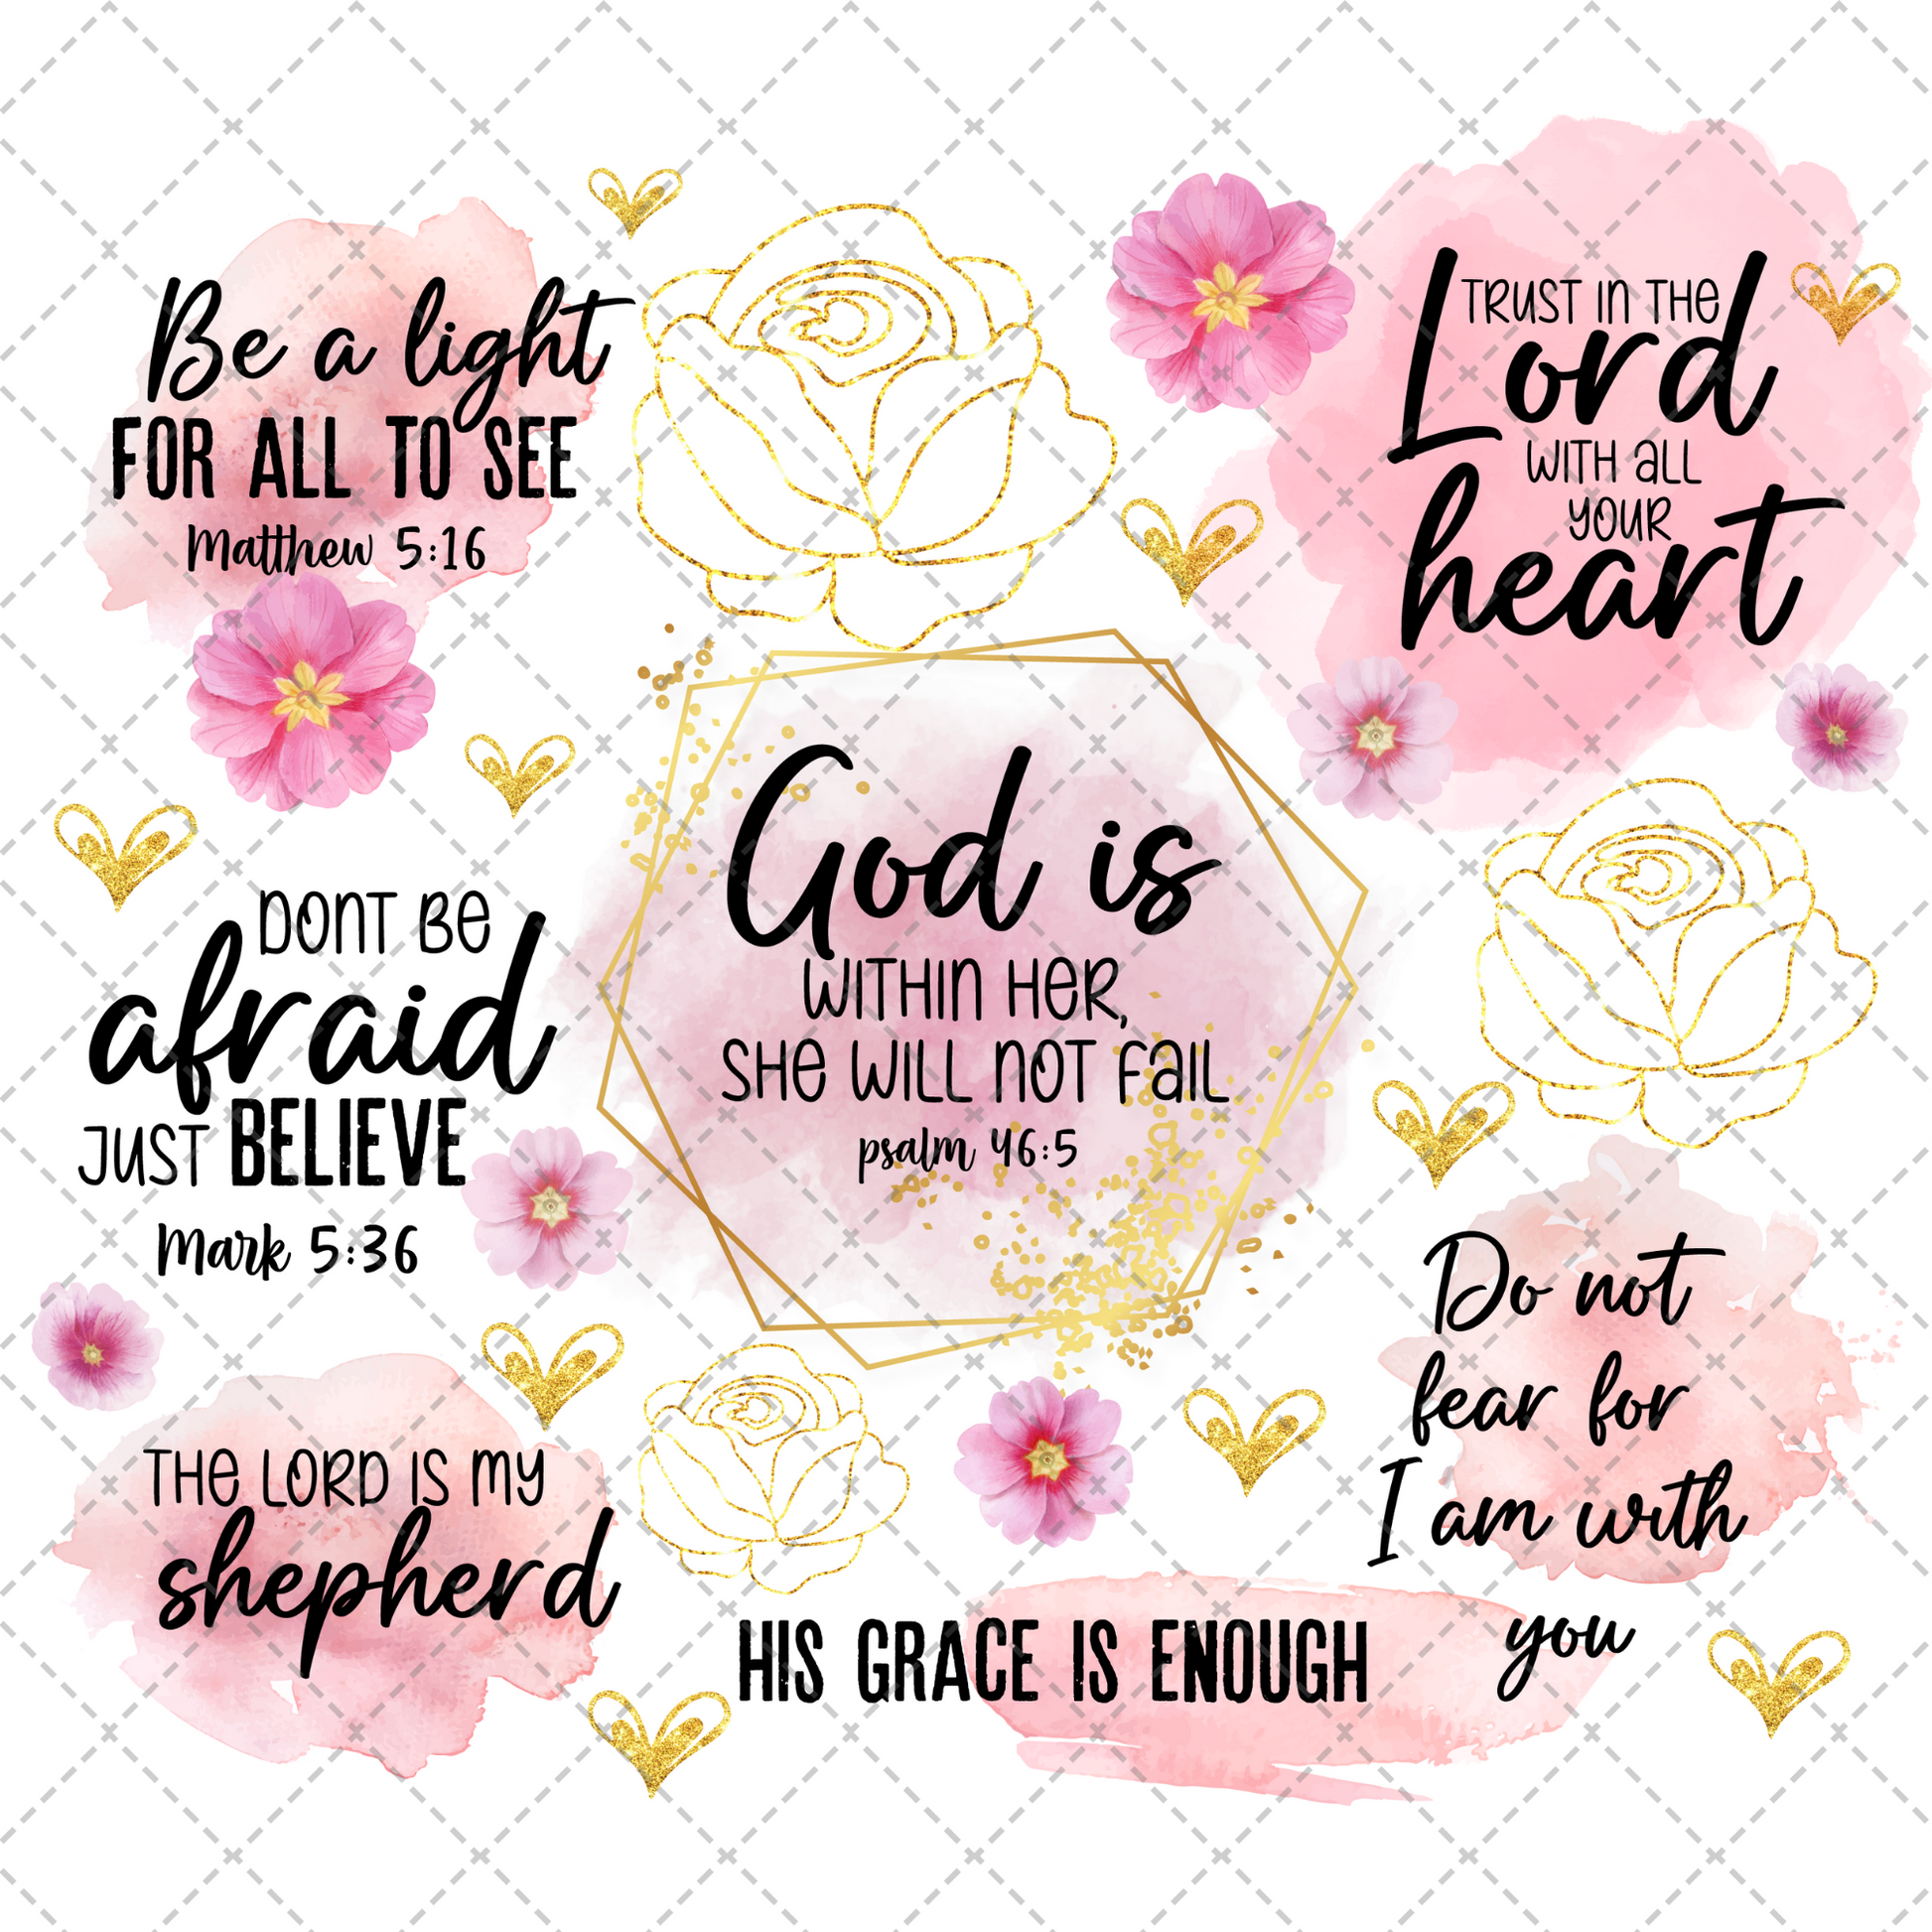 Be a light
FOR ALL TO SEE
Matthew 5:16
TRUST IN THE
Lord
WITH ALL
YOUR
heart
God is
WITHIN HER,
SHE WILL NOT FAIL
psalm 46:5
DONT BE
afraid
JUST BELIEVE
Mark 5:36
Do not
fear for
I am with
you
THE LORD IS MY
shepherd
HIS GRACE IS ENOUGH